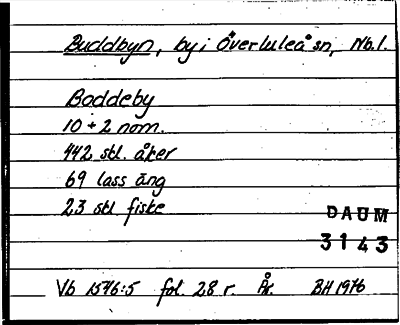 Buddbyn, by i Överluleå sn, Nb.l.
Boddeby
10 + 2 nom.
442 skl. åker
69 lass äng
23 skl fiske
DAUM
3143
Vb 1546:5 fol. 28 r. År. BH 1976